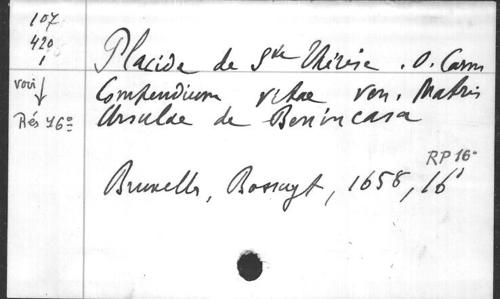 107
420
1
voir
Rés 16°
Placide de Ste Thérèse . O. Carm
Compendium vitae ven. Matris
Ursulae de Benincasa
RP 16°
Bruxelles, Bossuyt, 1658, 16°